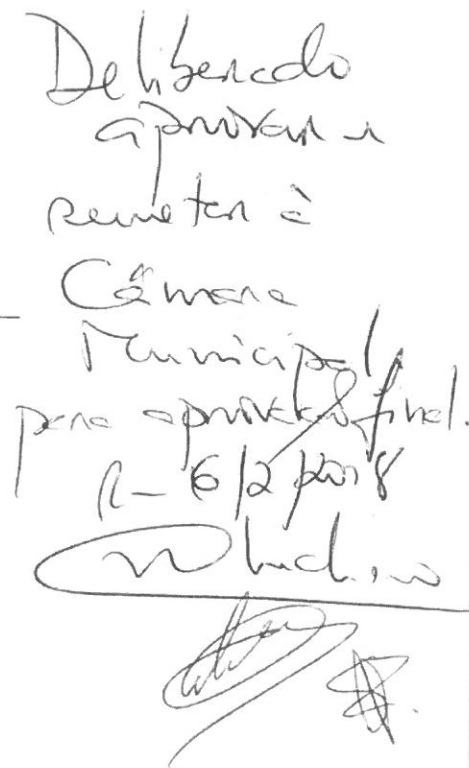 Deliberado
aprovar e
remeter à
Câmara
Municipal
para aprovação final.
6/2/2018